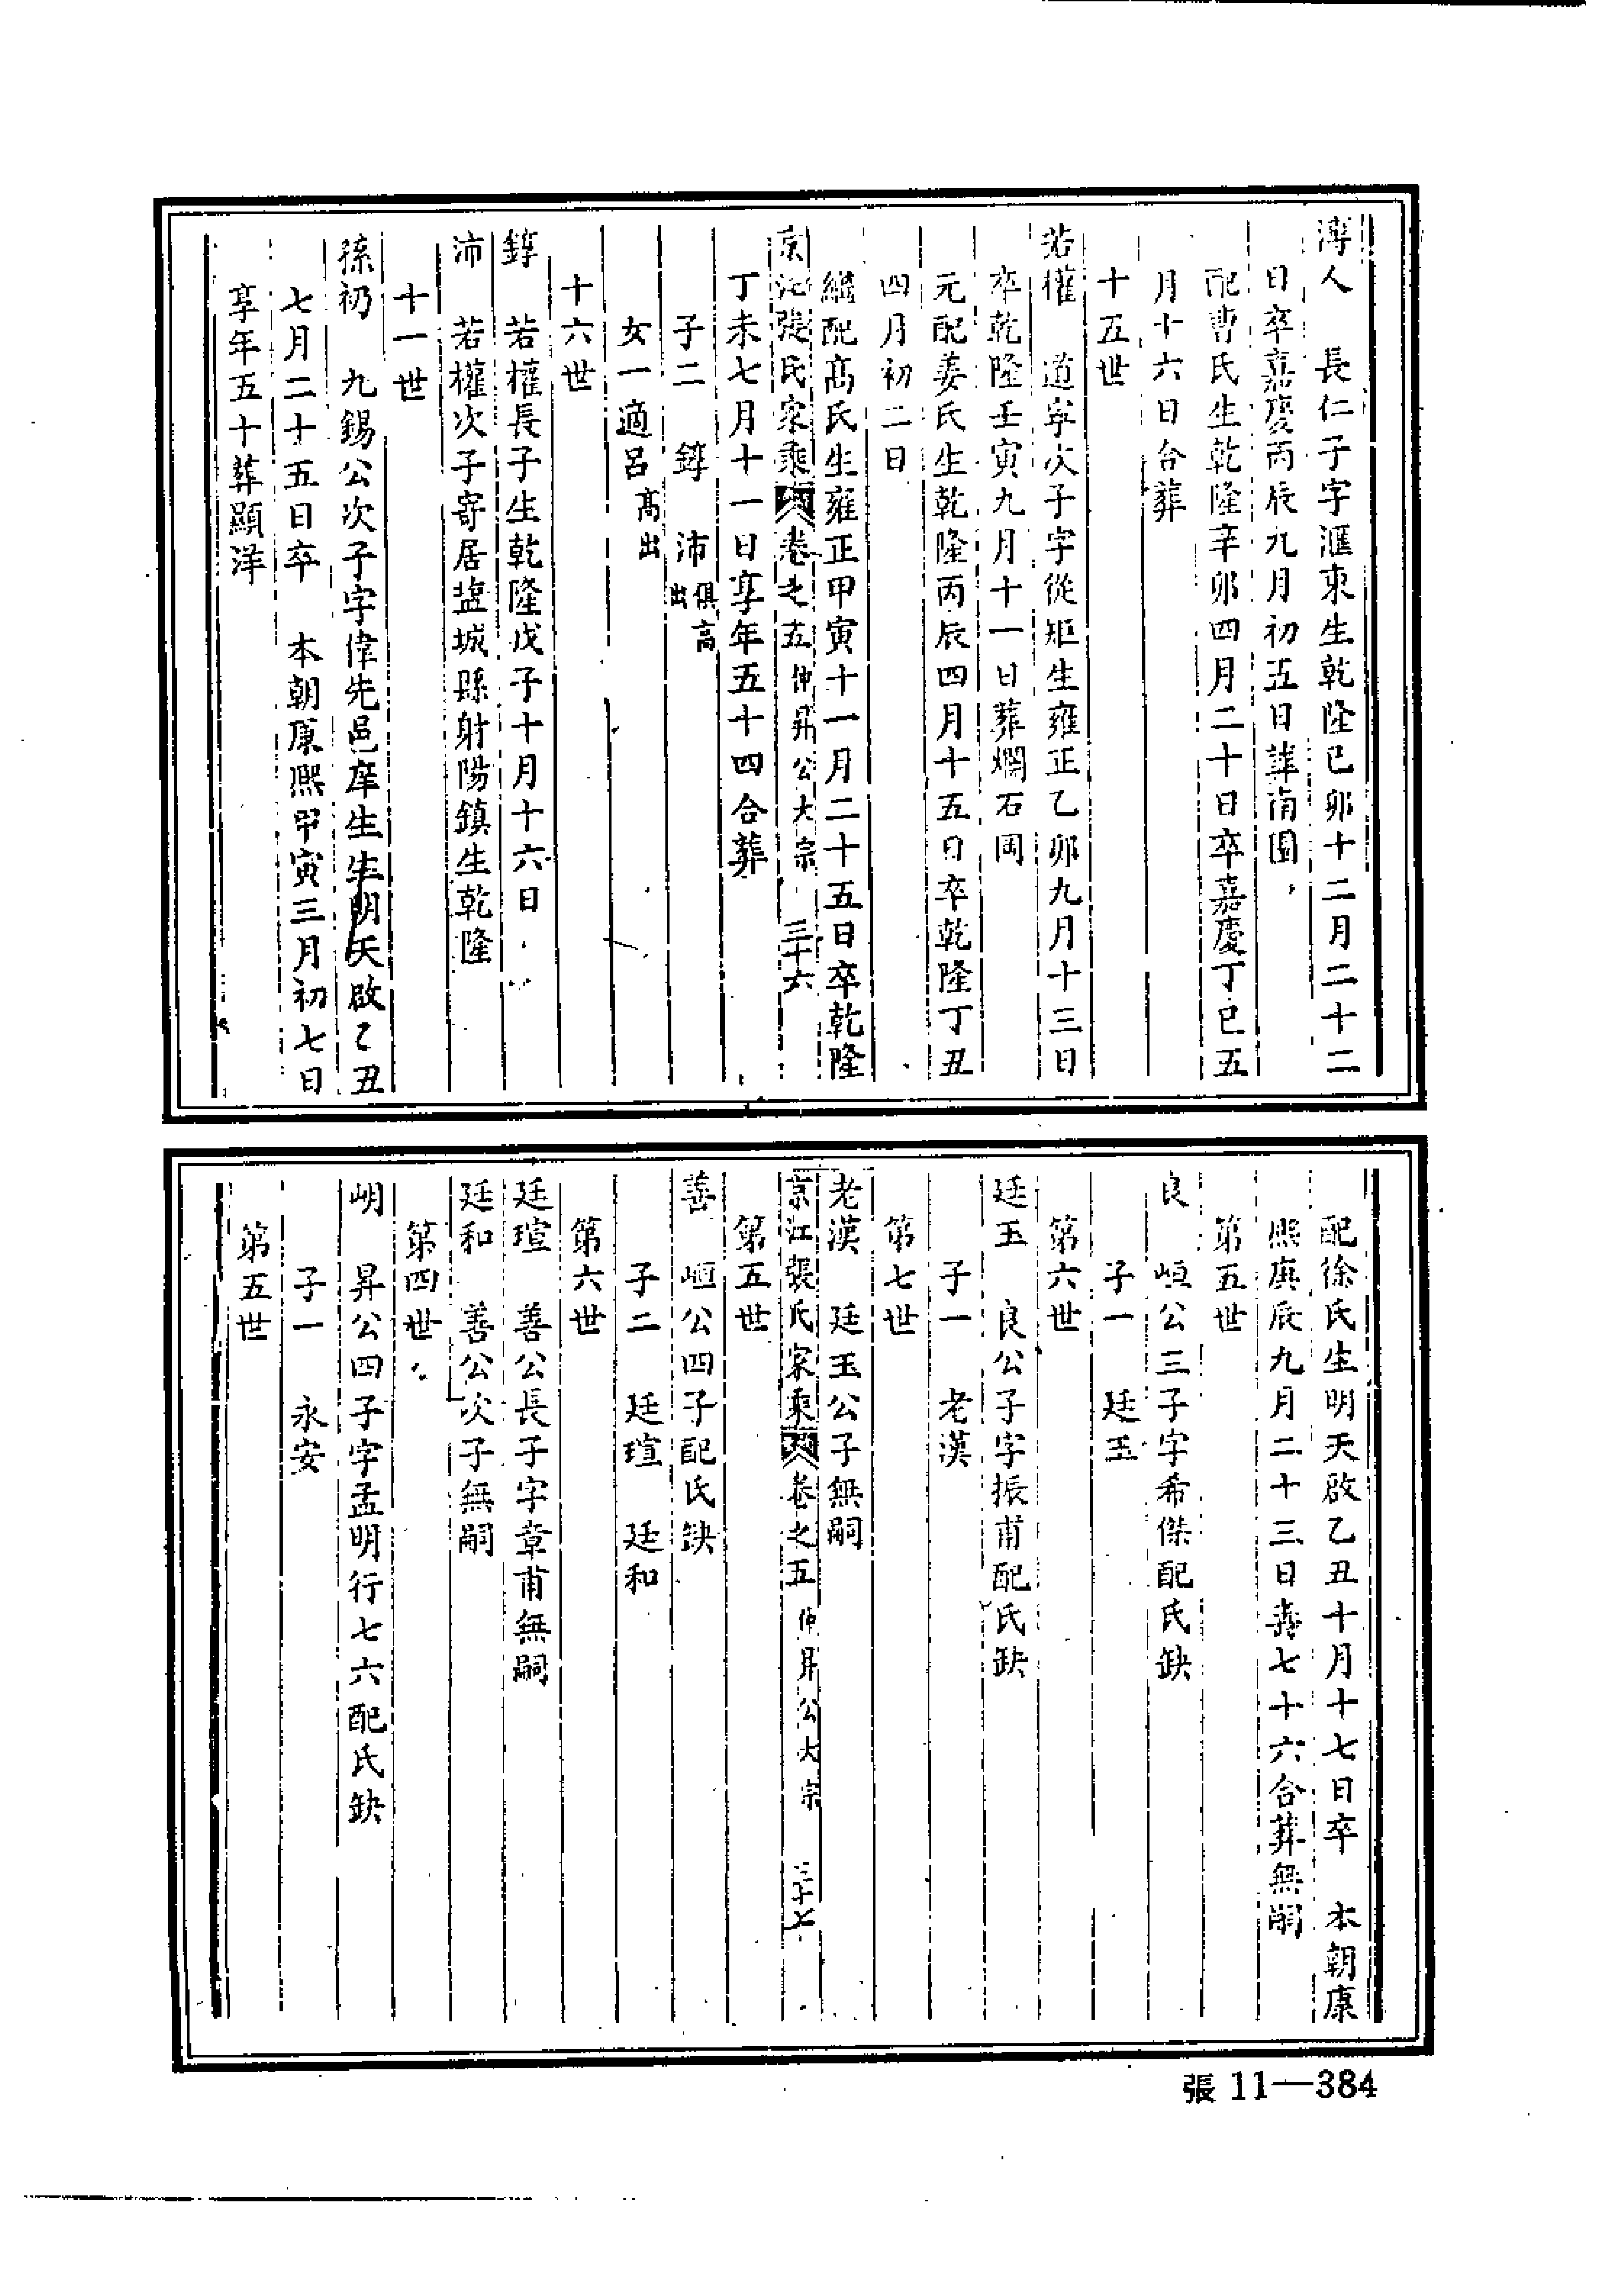 溥人 長仁子字滙東生乾隆己卯十二月二十二
日卒嘉慶丙辰九月初五日葬南園
配曹氏生乾隆辛卯四月二十日卒嘉慶丁巳五
月十六日合葬
十五世
若權 道寧次子字從矩生雍正乙卯九月十三日
卒乾隆壬寅九月十一日葬爛石岡
元配姜氏生乾隆丙辰四月十五日卒乾隆丁丑
四月初二日
繼配高氏生雍正甲寅十一月二十五日卒乾隆
京江張氏家乘 卷之五 仲昇公大宗 三十六
丁未七月十一日享年五十四合葬
子二 錞 沛 俱高出
女一適呂 高出
十六世
錞 若權長子生乾隆戊子十月十六日
沛 若權次子寄居塩城縣射陽鎮生乾隆
十一世
孫礽 九錫公次子字偉先邑庠生生明天啟乙丑
七月二十五日卒 本朝康熙甲寅三月初七日
享年五十葬顯洋
配徐氏生明天啟乙丑十月十七日卒 本朝康
熙庚辰九月二十三日壽七十六合葬無嗣
第五世
良 峘公三子字希傑配氏缺
子一 廷玉
第六世
廷玉 良公子字振甫配氏缺
子一 老漢
第七世
老漢 廷玉公子無嗣
京江張氏家乘 卷之五 仲昇公大宗 三十七
第五世
善 峘公四子配氏缺
子二 廷瑄 廷和
第六世
廷瑄 善公長子字章甫無嗣
廷和 善公次子無嗣
第四世
岄 昇公四子字孟明行七六配氏缺
子一 永安
第五世
張11—384